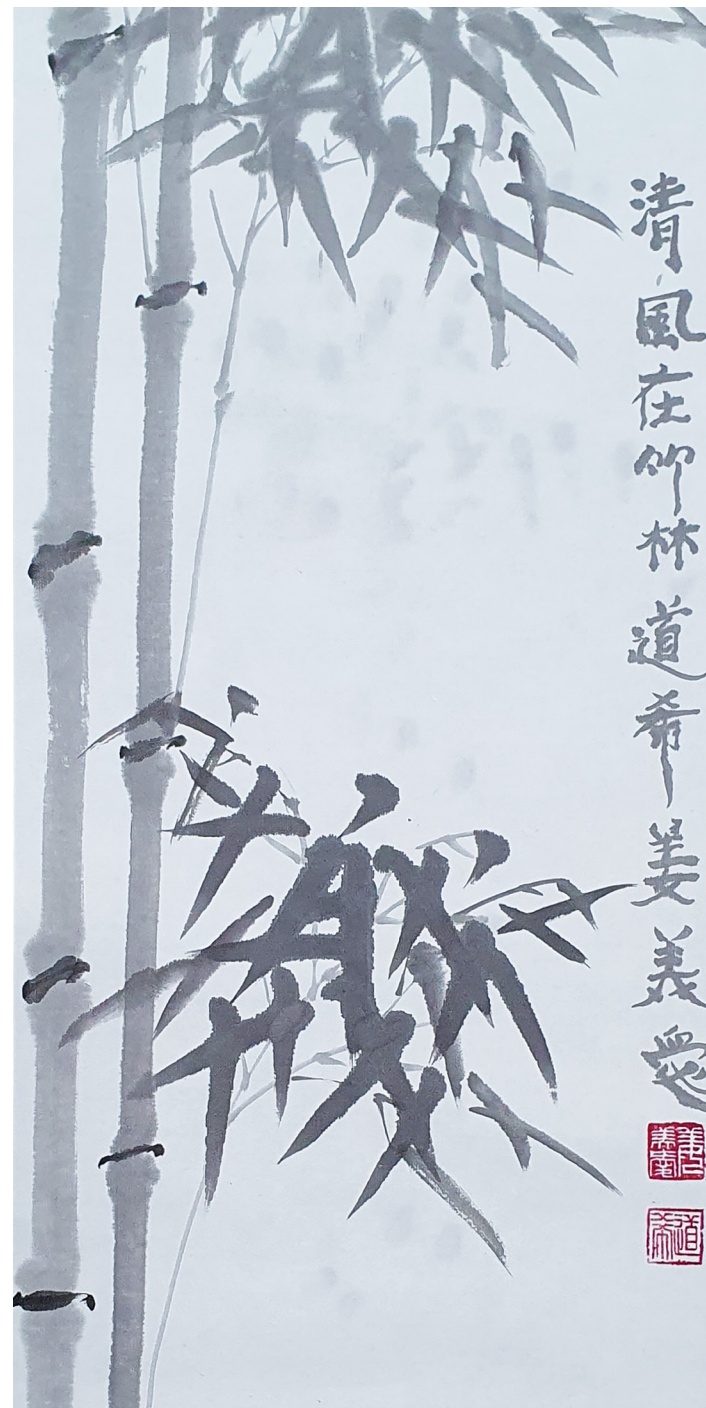 清風在竹林道希姜美愛
道希